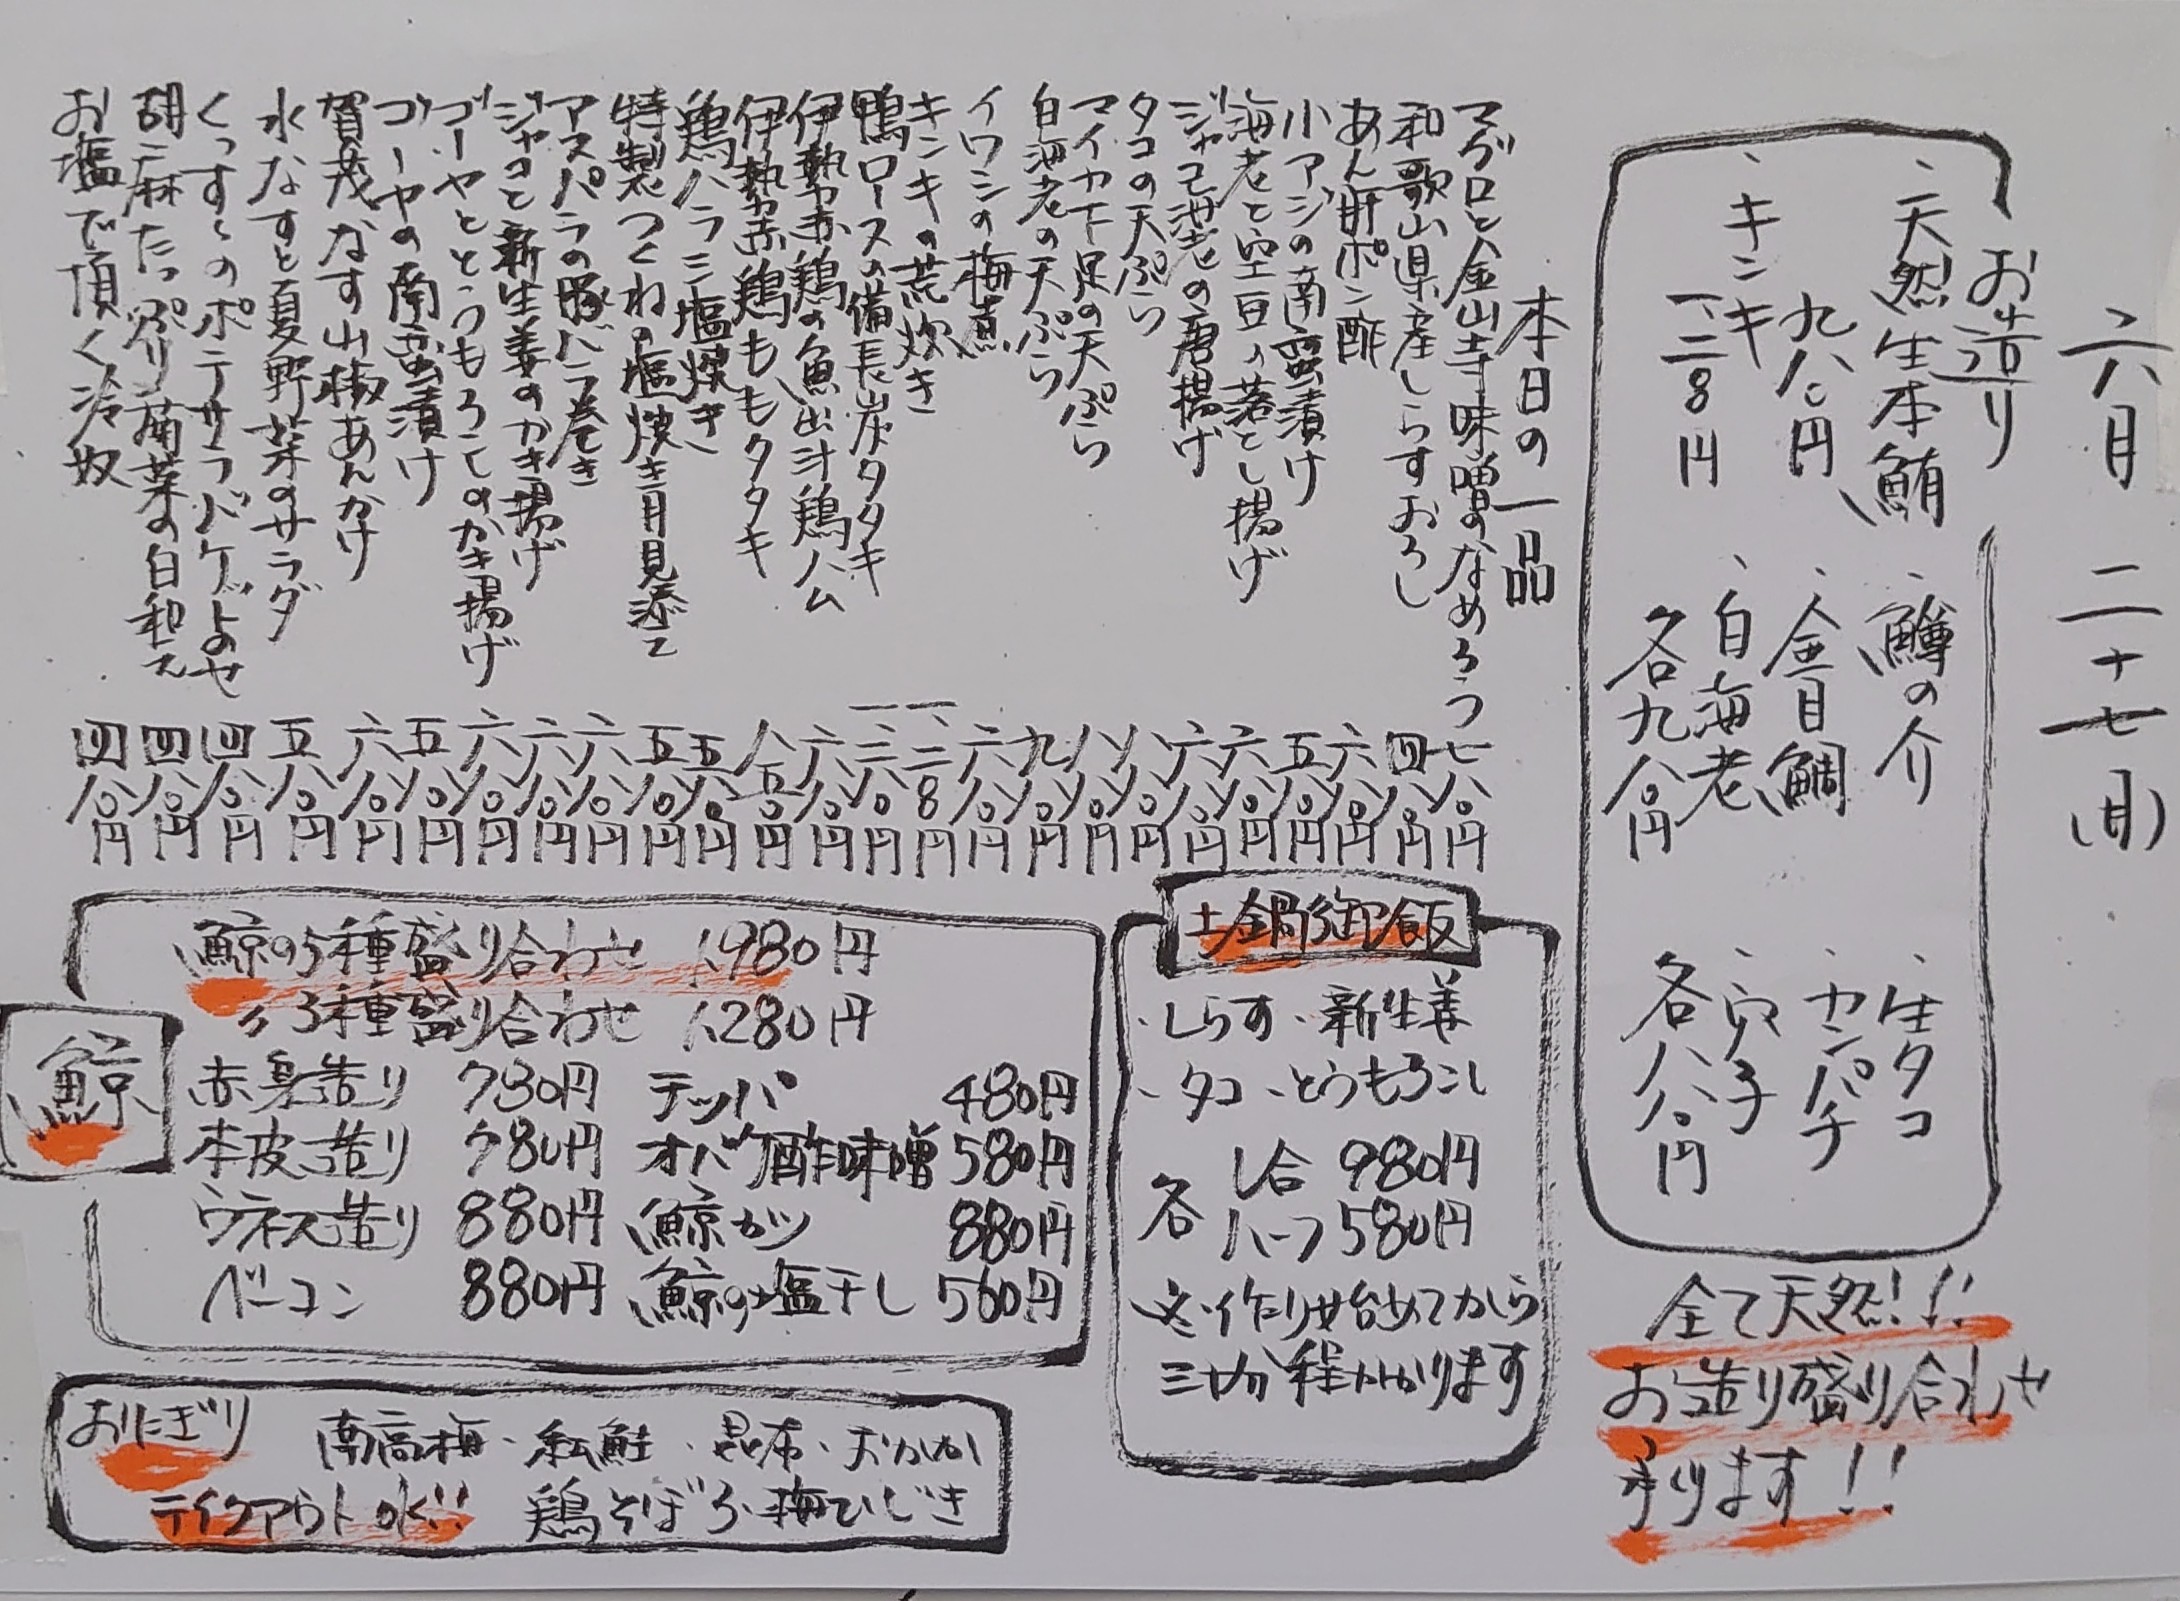 六月二十七日(月)
お造り
、天然生本鮪
九八〇円
、キンキ
一、二八〇円
、鱒の介
、金目鯛
、白海老
各九八〇円
、生タコ
、カンパチ
、穴子
各八八〇円
全て天然!!
お造り盛り合わせ
承ります!!
本日の一品
マグロと金山寺味噌のなめろう 七八〇円
和歌山県産しらすおろし 四八〇円
あん肝ポン酢 六八〇円
小アジの南蛮漬け 五八〇円
海老と空豆の落とし揚げ 六八〇円
ジャコ海老の唐揚げ 六八〇円
タコの天ぷら 八八〇円
マイカ下足の天ぷら 八八〇円
白海老の天ぷら 九八〇円
イワシの梅煮 六八〇円
キンキの荒炊き 一、二八〇円
鴨ロースの備長炭タタキ 一、三八〇円
伊勢赤鶏の魚出汁鶏ハム 六八〇円
伊勢赤鶏ももタタキ 八五〇円
鶏ハラミ塩焼き 五八〇円
特製つくねの塩焼き月見添え 五八〇円
アスパラの豚バラ巻き 六八〇円
ジャコと新生姜のかき揚げ 六八〇円
ゴーヤととうもろこしのかき揚げ 六八〇円
ゴーヤの南蛮漬け 五八〇円
賀茂なす山椒あんかけ 六八〇円
水なすと夏野菜のサラダ 五八〇円
のポテサラバゲットのせ 四八〇円
胡麻たっぷり菊菜の白和え 四八〇円
お塩で頂く冷奴 四八〇円
土鍋御飯
・しらす・新生姜
・タコ・とうもろこし
各 一合 980円
ハーフ 580円
※作り始めてから
三十分程かかります
鯨
鯨の5種盛り合わせ 1,980円
〃3種盛り合わせ 1,280円
赤身造り 780円 テッパ 480円
本皮造り 780円 オバケ酢味噌 580円
ウネス造り 880円 鯨カツ 880円
ベーコン 880円 鯨の塩干し 560円
おにぎり 南高梅・紅鮭・昆布・おかか
テイクアウトOK!! 鶏そぼろ・梅ひじき